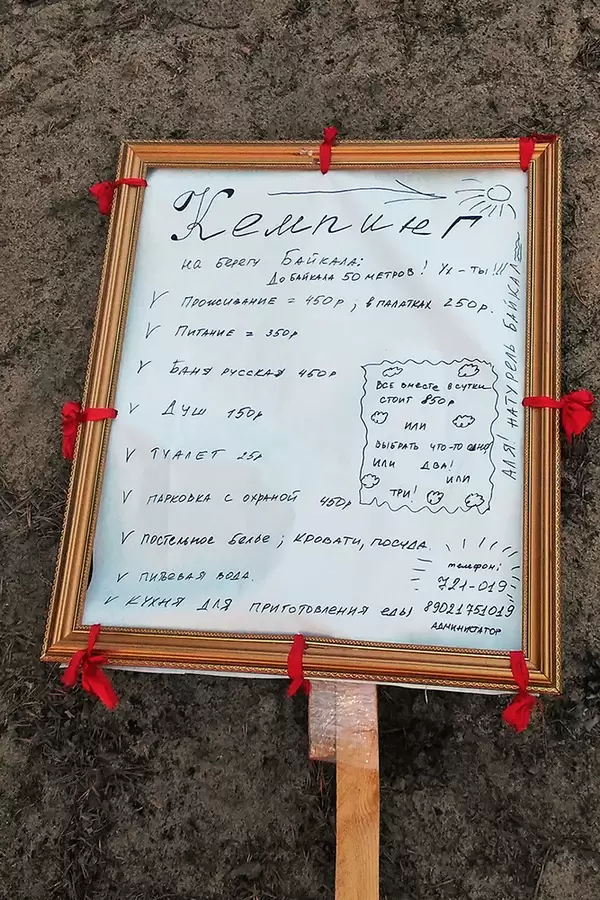 Кемпинг
на берегу Байкала:
До Байкала 50 метров! Ух-ты!!!
V Проживание = 450р; в палатках 250р.
V Питание = 350р
V Баня русская 450р
V Душ 150р
V Туалет 25р
V парковка с охраной 450р
V постельное белье; кровати, посуда.
V питьевая вода.
V кухня для приготовления еды
Все вместе в сутки
стоит 850р
или
выбрать что-то одно
или два!
или
три!
Аля! Натурель Байкал
телефон:
721-019
89021751019
администатор